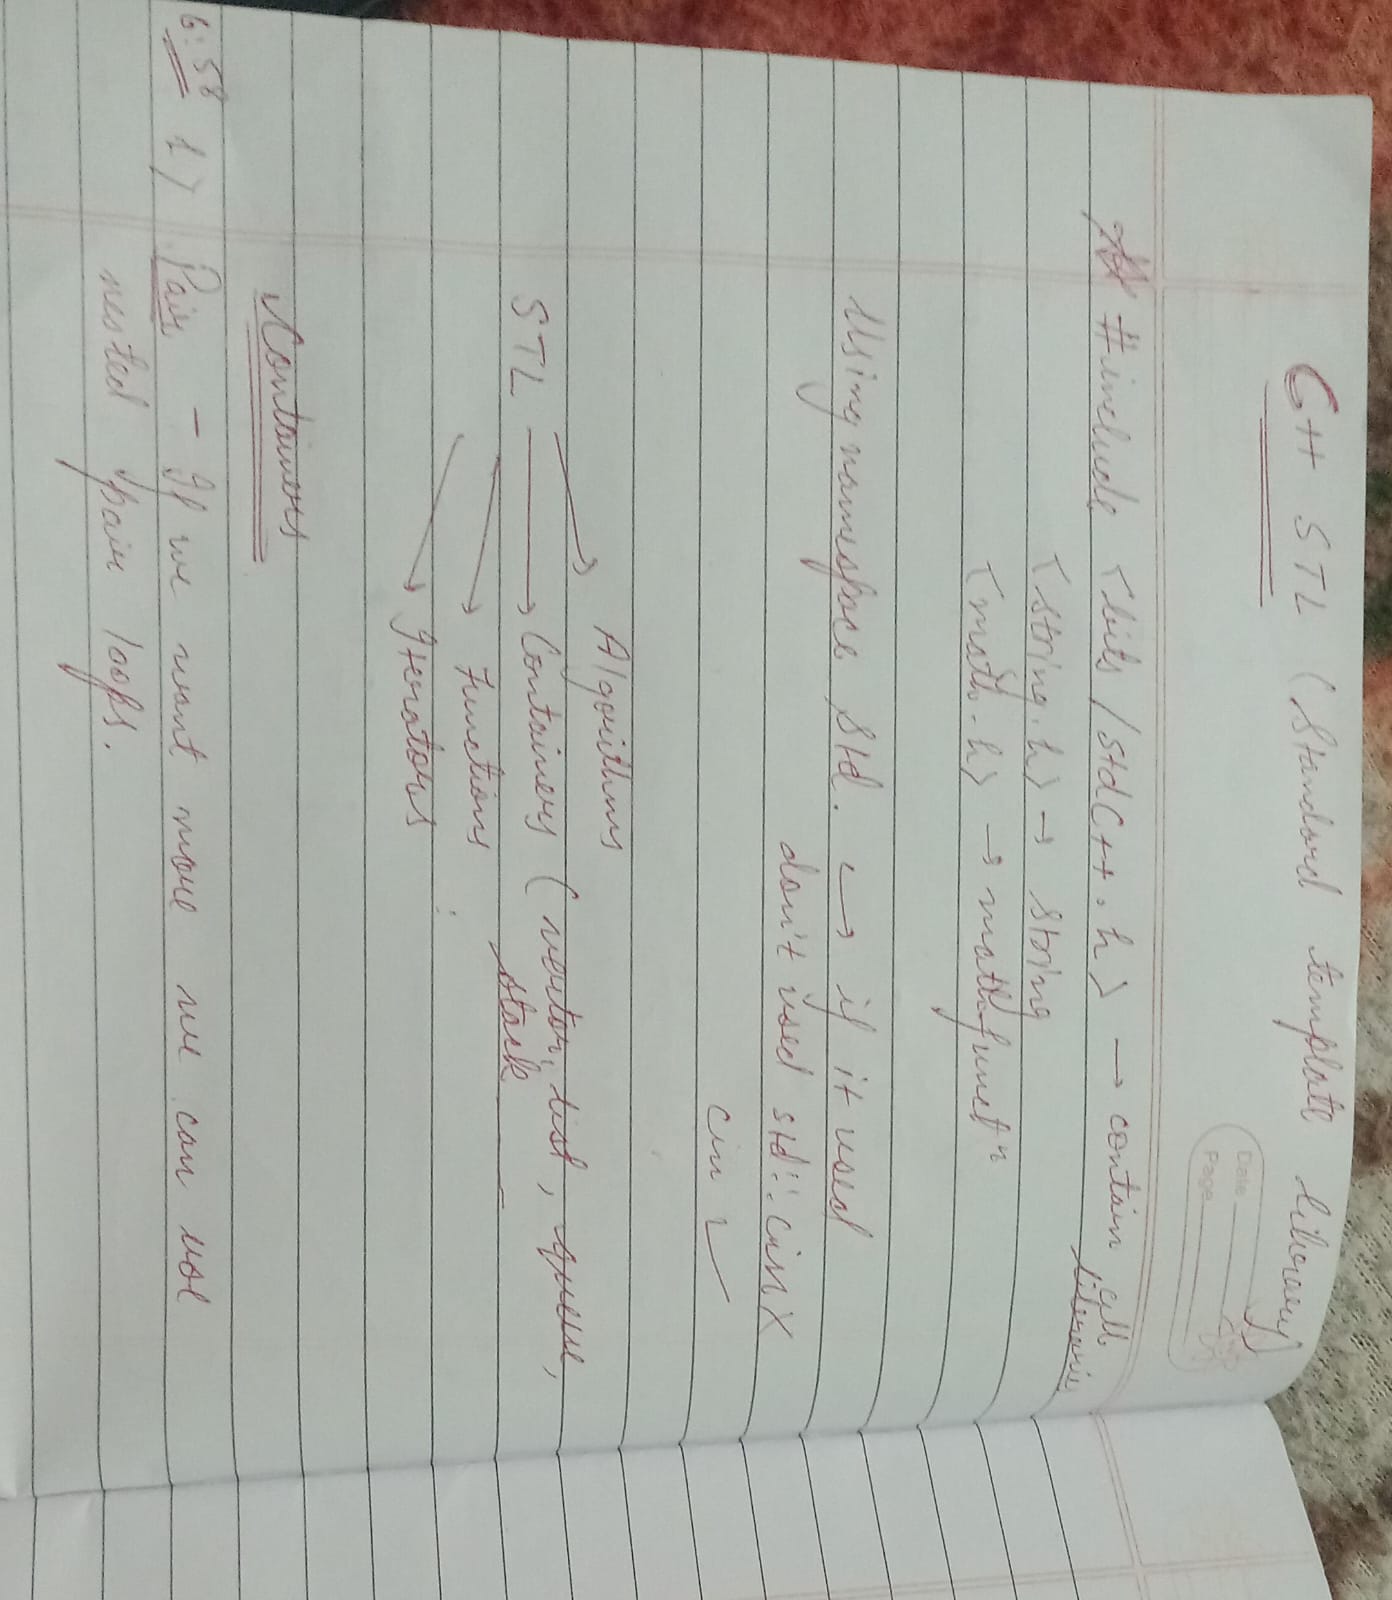 C++ STL (Standard template library)
Date
Page
# #include <bits/stdc++.h> → contain all
<string.h> → string
<math.h> → math functn
Using namespace std. ↪ if it used
don't used std::cin X
cin ✓
Algorithms
STL → Containers (vector, list, queue,
stack
Functions
Iterators
Containers
6:58 1) Pair - If we want more we can use
nested pair loops.